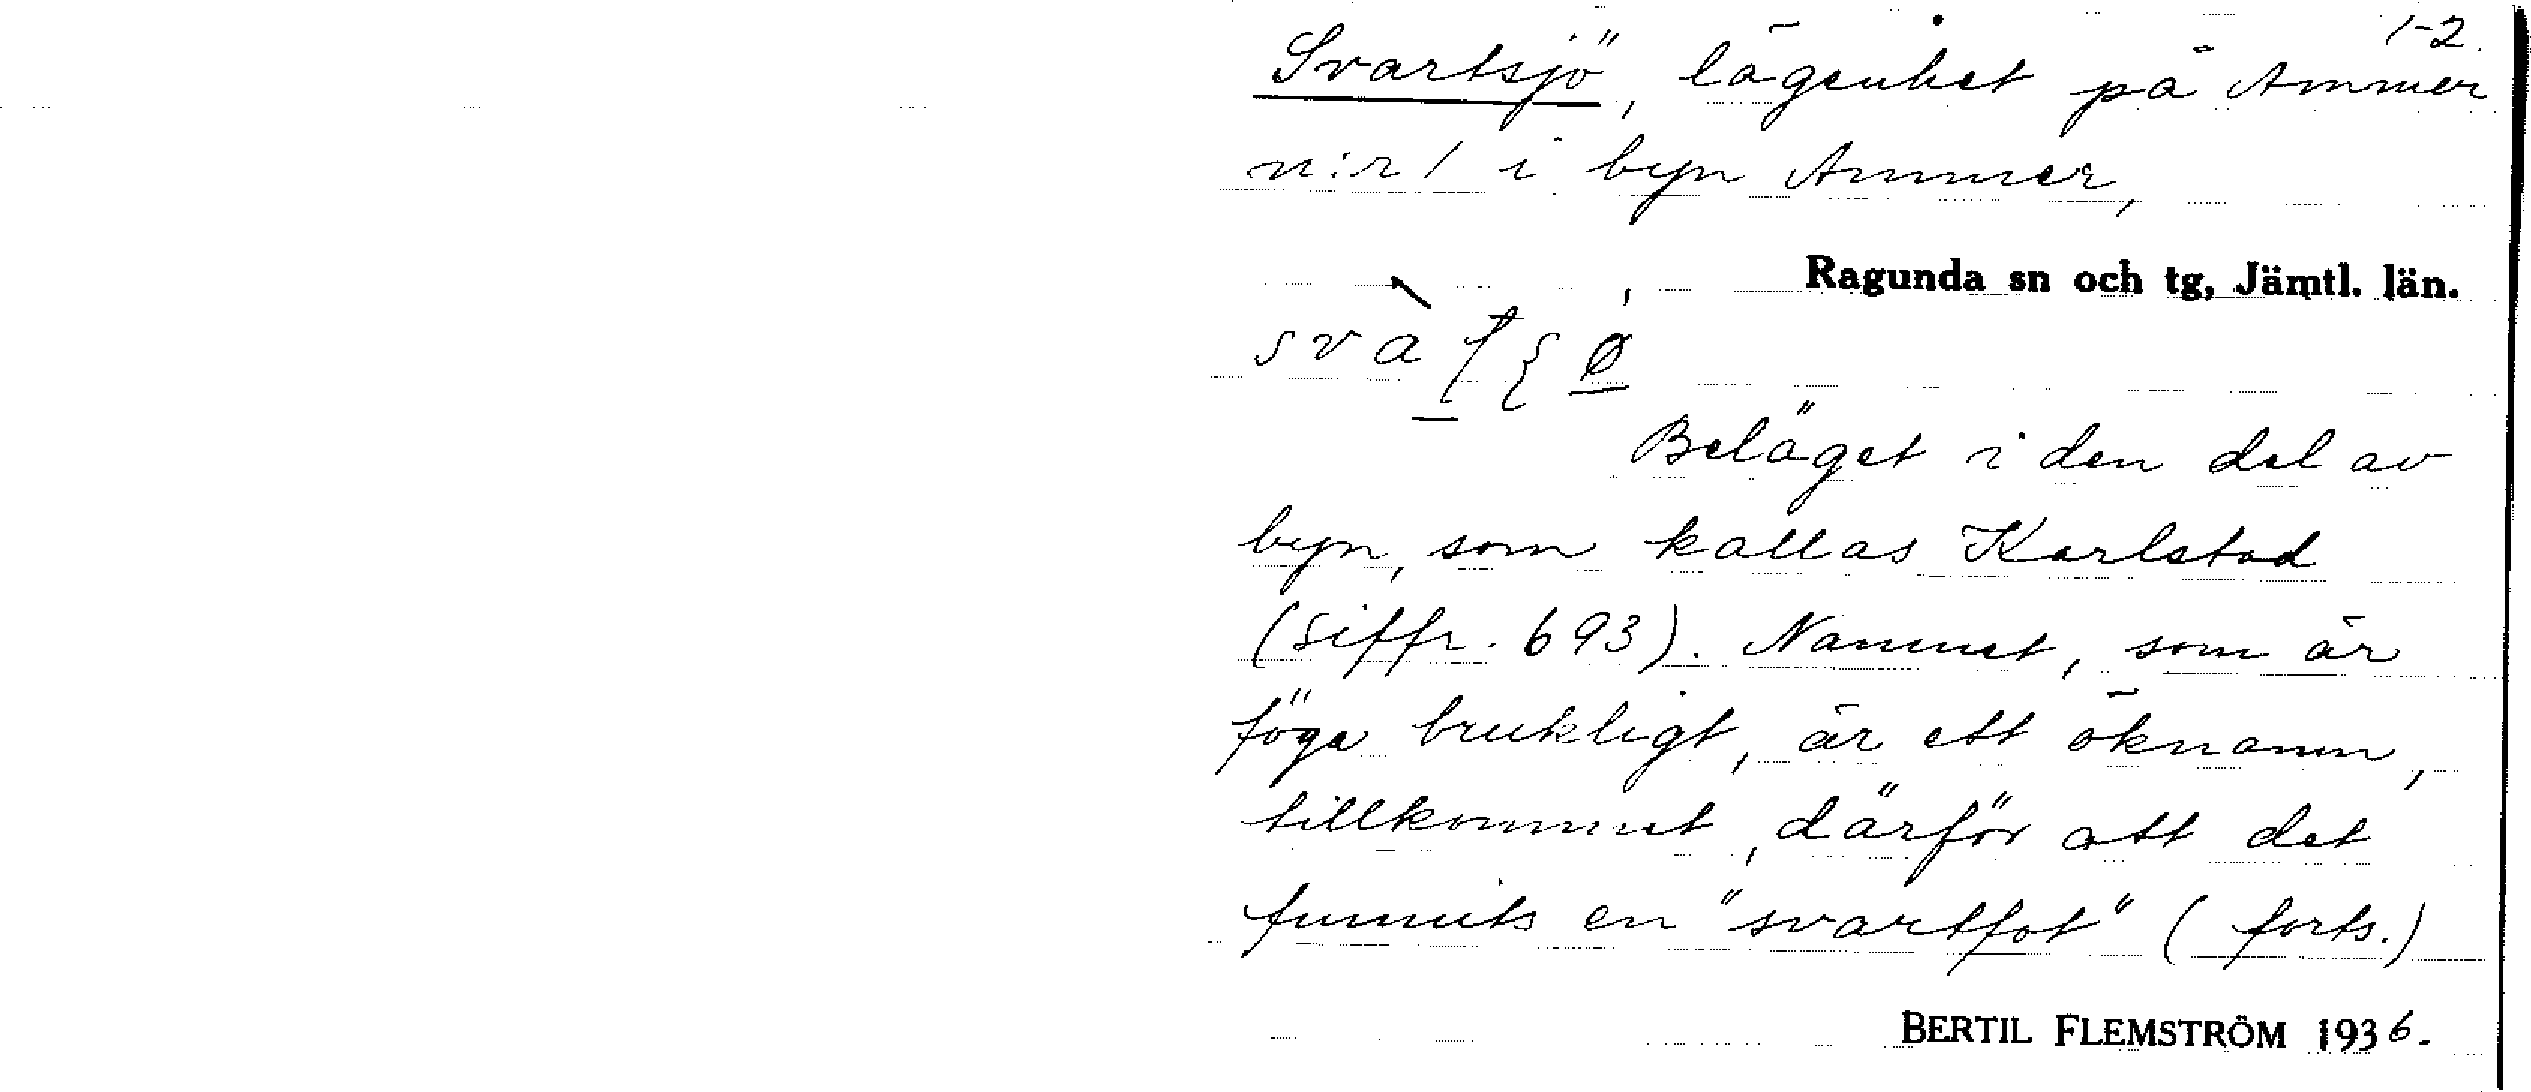 1-2.
Svartsjö, lägenhet på Ammer
n:r 1 i byn Ammer,
Ragunda sn och tg, Jämtl. län.
Beläget i den del av
byn, som kallas Karlstad
(siffr. 693). Namnet, som är
föga brukligt, är ett öknamn,
tillkommet, därför att det
funnits en "svartfot" (forts.)
BERTIL FLEMSTRÖM 1936.